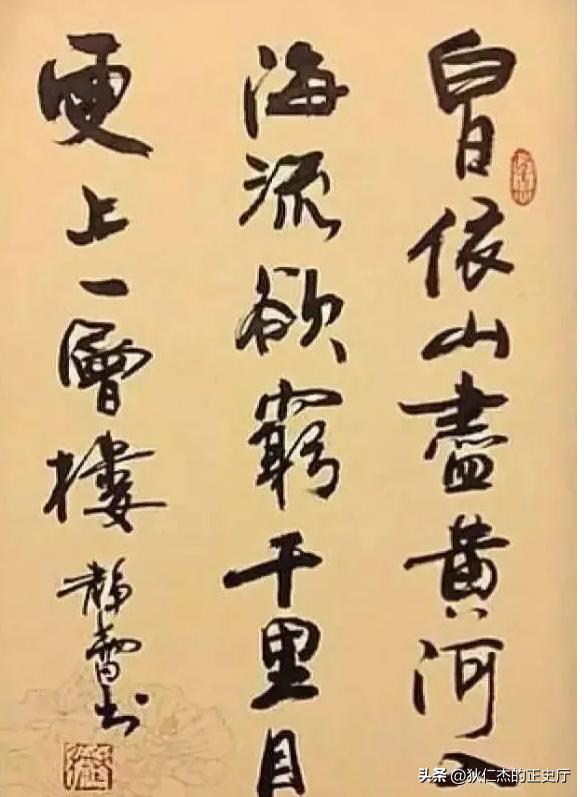 白日依山盡黃河入
海流欲窮千里目
更上一層樓
靜雪书
头条 @狄仁杰的正史厅